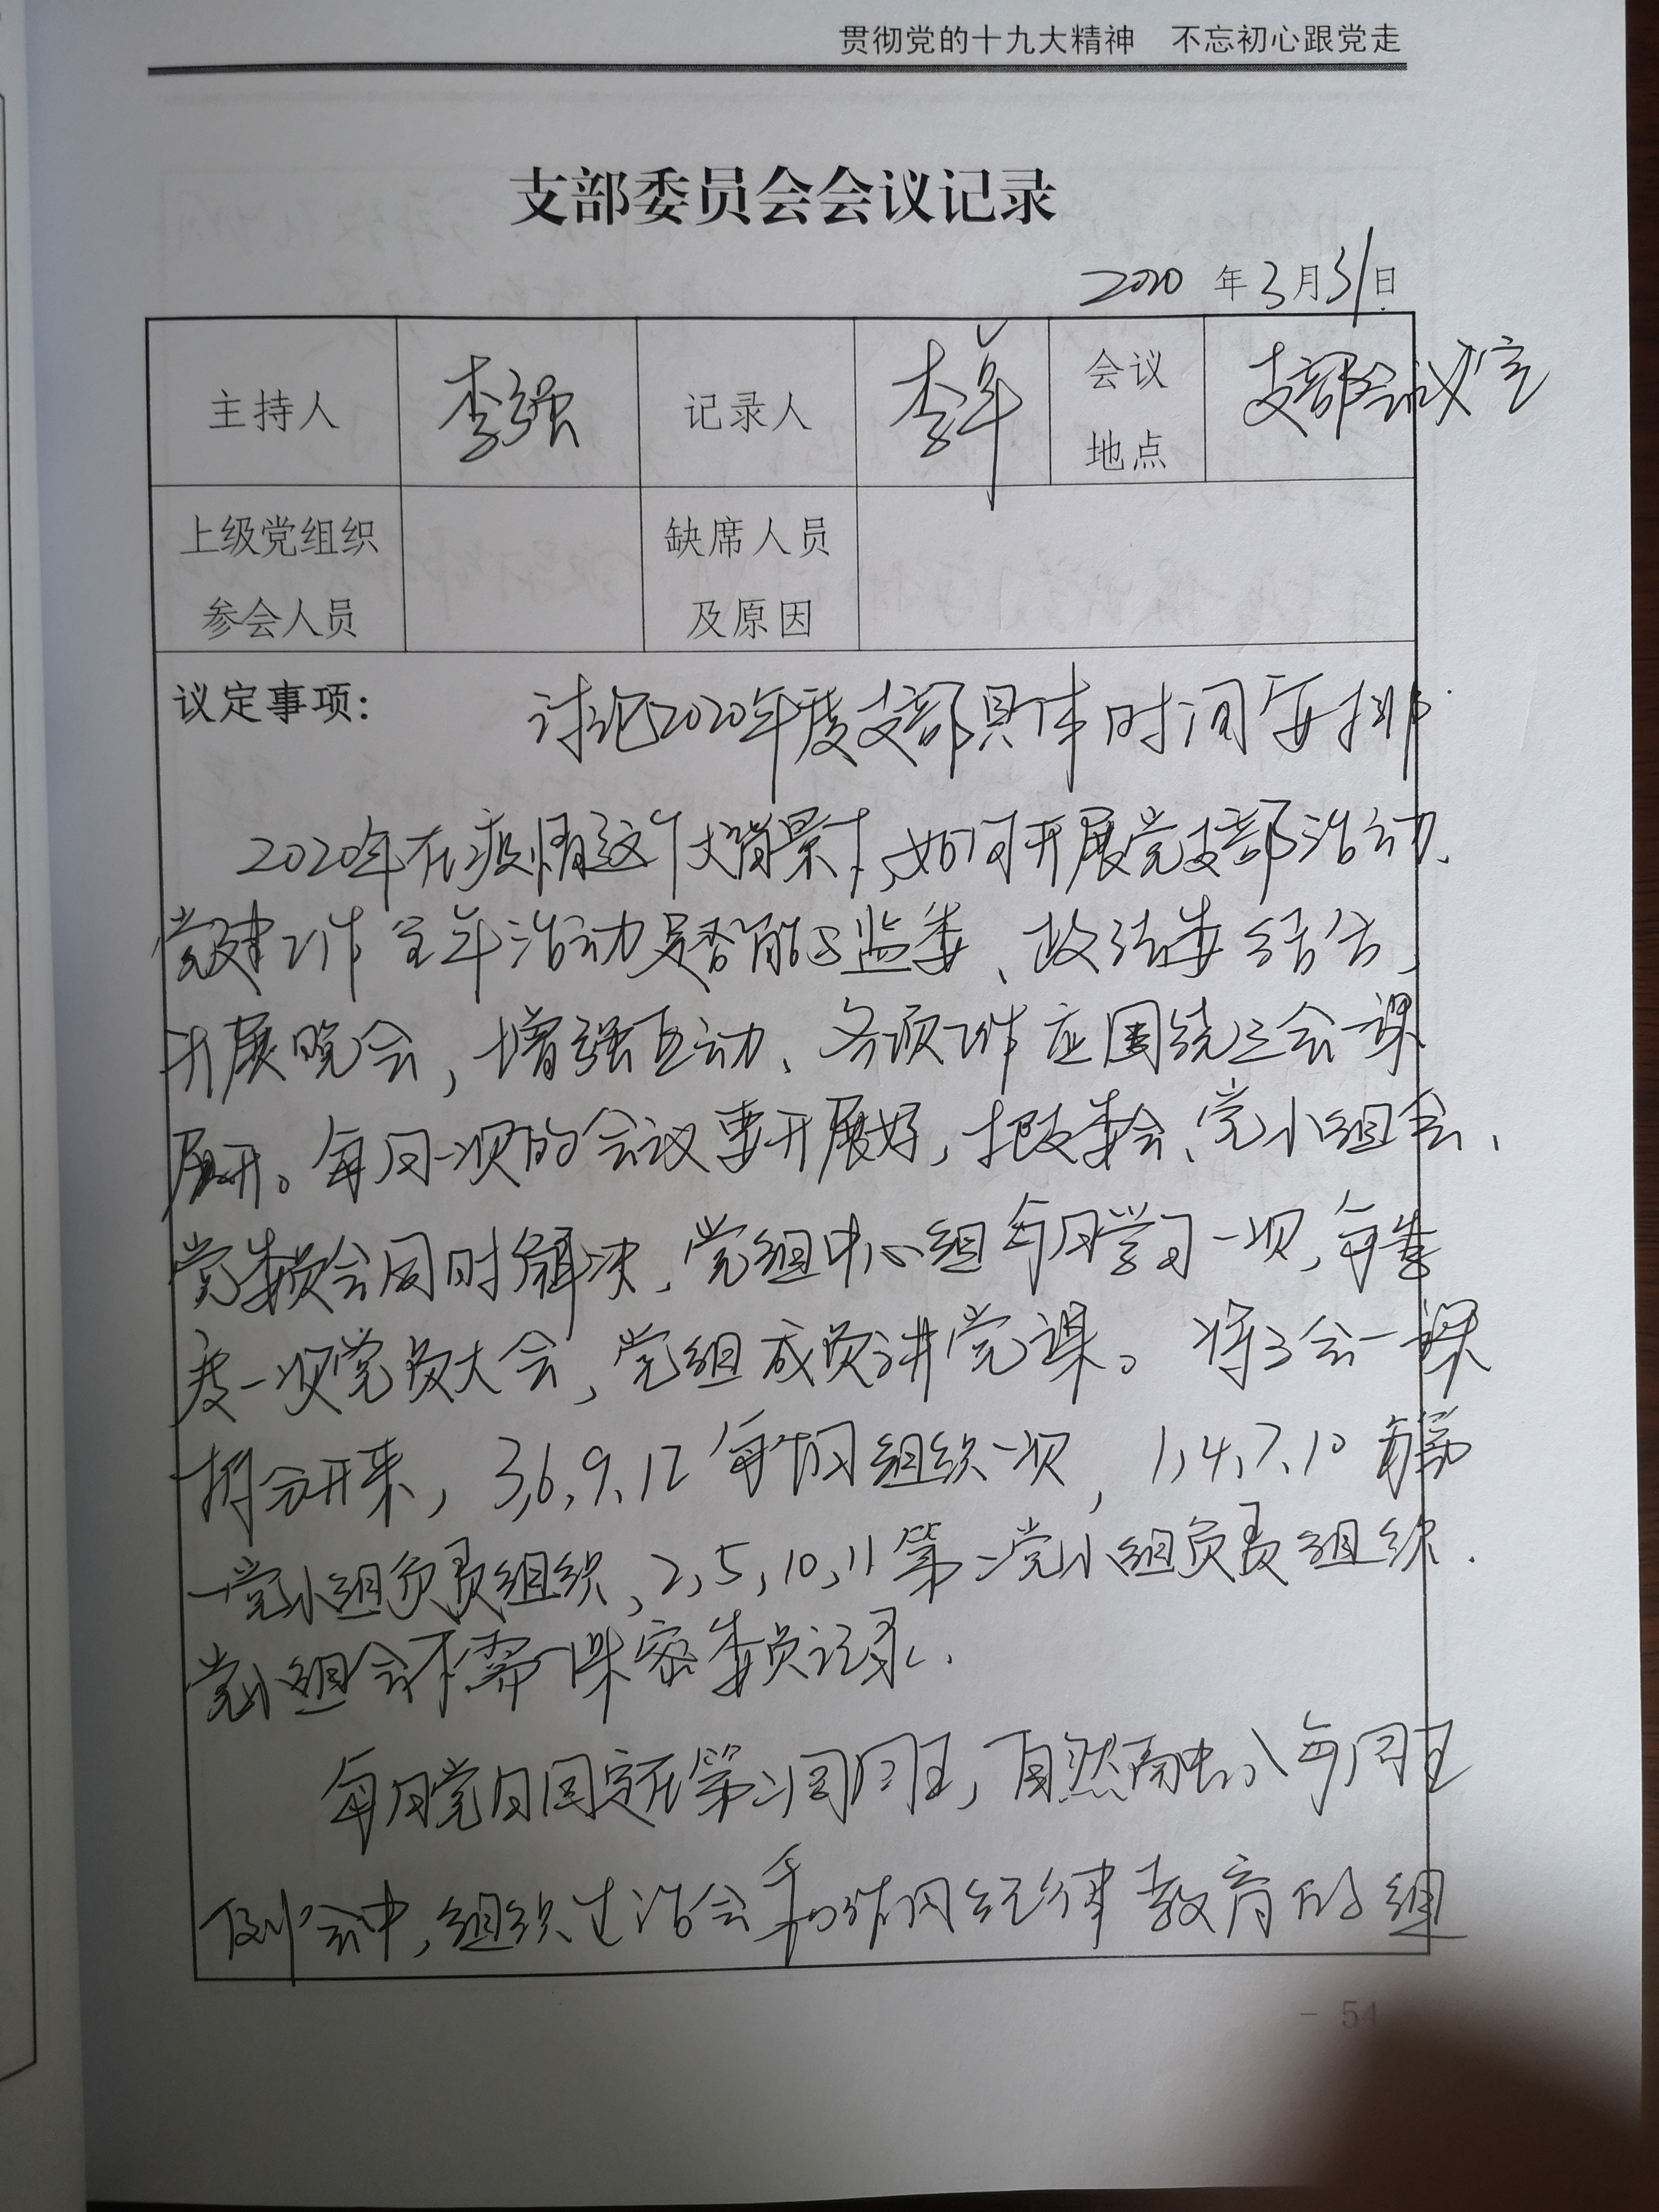 贯彻党的十九大精神 不忘初心跟党走
支部委员会会议记录
2020 年 3 月 31 日
主持人 李强 记录人 李 会议地点 支部会议室
上级党组织参会人员 缺席人员及原因
议定事项: 讨论2020年度支部具体时间安排
2020年在疫情这个大背景下,如何开展党支部活动、
党建工作 全年活动是否能与监委、政法委结合,
开展晚会,增强互动、各项工作应围绕三会一课
展开。每月一次的会议要开展好,把支委会、党小组会、
党委员会同时解决,党组中心组每月学习一次,每季
度一次党员大会,党组成员讲党课。将3会一课
拆分开来,3,6,9,12每个月组织一次,1,4,7,10 第
一党小组负责组织,2,5,10,11第二党小组负责组织.
党小组会不需 委员记录.
每月党日固定在第二周周五,自然而 入每周五
例会中,组织生活会和 纪律教育的组
- 54